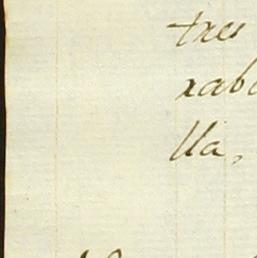 tres
rab
lla,